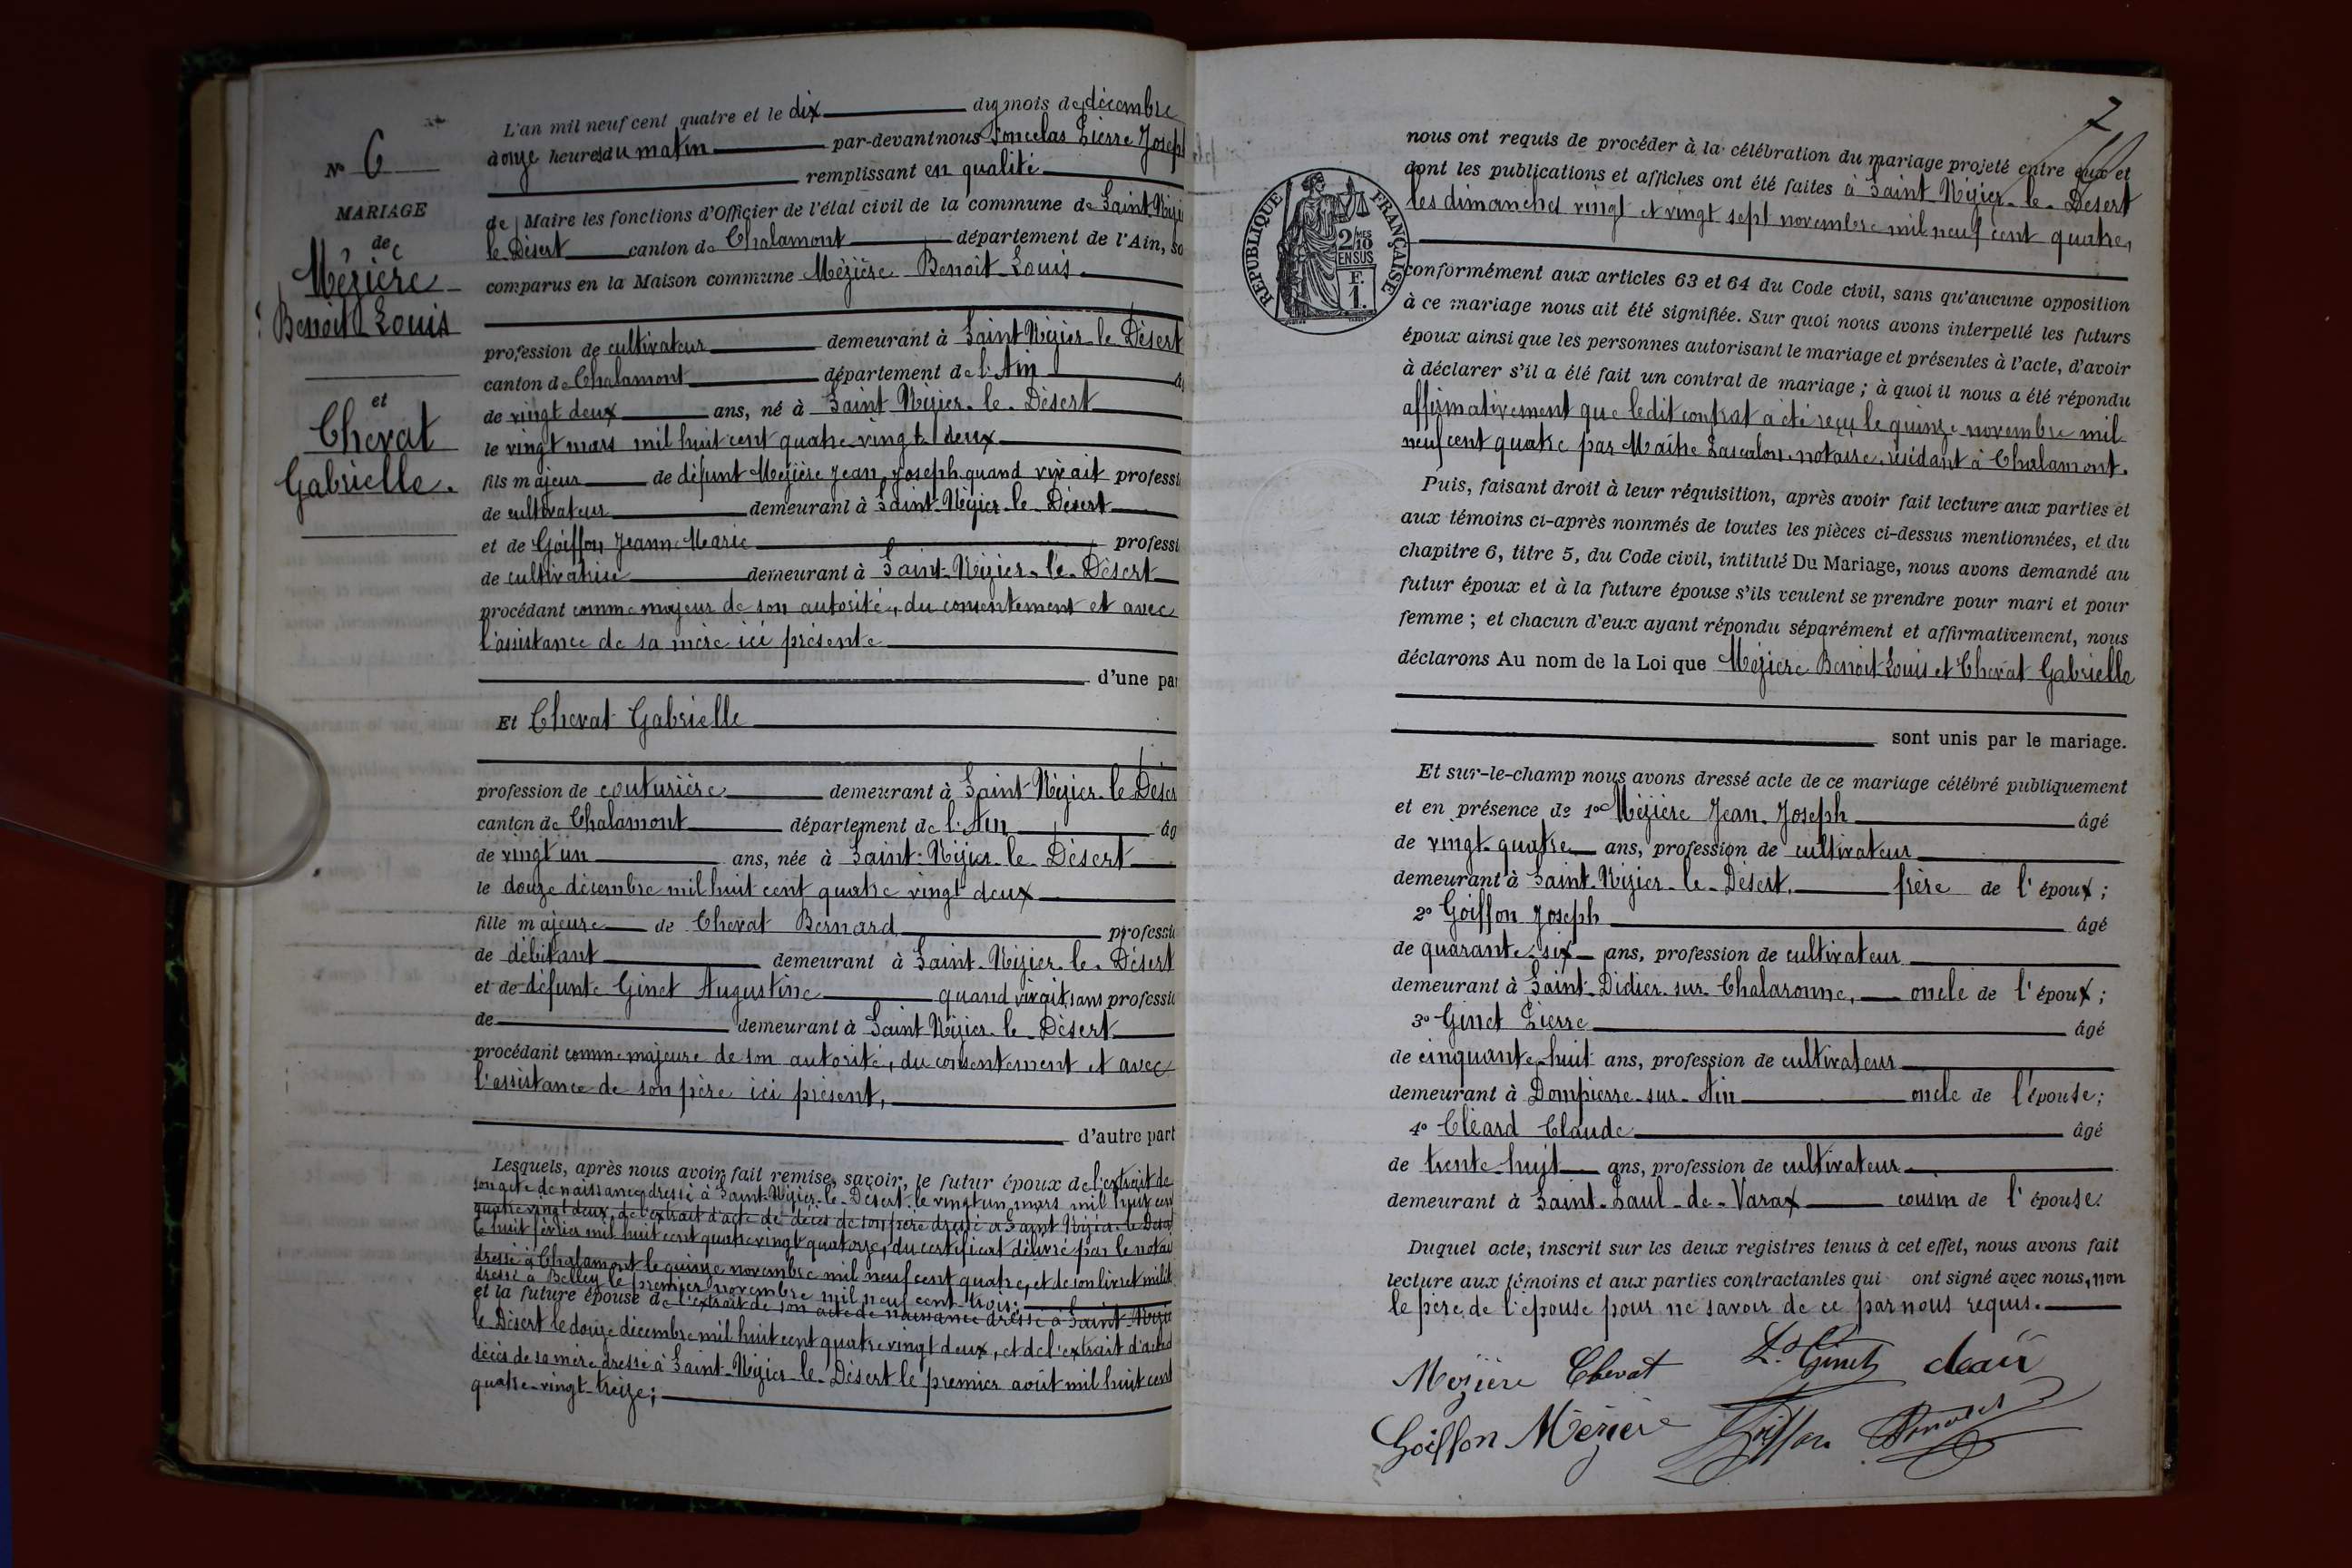 N° 6
MARIAGE
de
Mézière
Benoit Louis
et
Chevat
Gabrielle.
L'an mil neuf cent quatre et le dix du mois de décembre
donze heures du matin par-devant nous Poncelas Pierre Joseph
remplissant en qualité
de Maire les fonctions d'Officier de l'état civil de la commune de Saint Nizi
le Désert canton de Chalamont département de l'Ain, so
comparus en la Maison commune Mézière Benoit Louis.
profession de cultivateur demeurant à Saint Nizier le Désert
canton de Chalamont département de l'Ain â
de vingt deux ans, né à Saint Nizier le Désert
le vingt mars mil huit cent quatre vingt deux
fils majeur de défunt Mézière Jean Joseph quand vivait professi
de cultivateur demeurant à Saint-Nizier le Désert
et de Goiffon Jeanne Marie professi
de cultivatrice demeurant à Saint-Nizier-le-Désert
procédant comme majeur de son autorité, du consentement et avec
l'assistance de sa mère ici présente
d'une par
Et Chevat Gabrielle
profession de couturière demeurant à Saint-Nizier-le Déser
canton de Chalamont département de l'Ain âg
de vingt un ans, née à Saint-Nizier le Désert
le douze décembre mil huit cent quatre vingt deux
fille majeure de Chevat Bernard professi
de débitant demeurant à Saint-Nizier-le-Désert
et de défunte Ginet Augustine quand vivait, sans professi
de demeurant à Saint Nizier le Désert
procédant comme majeure de son autorité, du consentement et avec
l'assistance de son père ici présent,
d'autre part
Lesquels, après nous avoir fait remise, savoir, le futur époux de l'extrait de
son acte de naissance dressé à Saint-Nizier-le-Désert le vingt un mars mil huit cent
quatre vingt deux, de l'extrait d'acte de décès de son père dressé à Saint Nizier-le-Désert
le huit février mil huit cent quatre vingt quatorze, du certificat délivré par le notai
dressé à Chalamont le quinze novembre mil neuf cent quatre, et de son livret milit
dressé à Belley le premier novembre mil neuf cent trois;
et la future épouse de l'extrait de son acte de naissance dressé à Saint-Nizie
le Désert le douze décembre mil huit cent quatre vingt deux, et de l'extrait d'acte d
décès de sa mère dressé à Saint-Nizier-le-Désert le premier août mil huit cent
quatre-vingt-treize;
7
RÉPUBLIQUE FRANÇAISE
2/10 MES
EN SUS
F.
1.
nous ont requis de procéder à la célébration du mariage projeté entre eux et
dont les publications et affiches ont été faites à Saint Nizier-le-Désert
les dimanches vingt et vingt sept novembre mil neuf cent quatre,
conformément aux articles 63 et 64 du Code civil, sans qu'aucune opposition
à ce mariage nous ait été signifiée. Sur quoi nous avons interpellé les futurs
époux ainsi que les personnes autorisant le mariage et présentes à l'acte, d'avoir
à déclarer s'il a été fait un contrat de mariage; à quoi il nous a été répondu
affirmativement que ledit contrat a été reçu le quinze novembre mil
neuf cent quatre par Maître Lascalon notaire résidant à Chalamont.
Puis, faisant droit à leur réquisition, après avoir fait lecture aux parties et
aux témoins ci-après nommés de toutes les pièces ci-dessus mentionnées, et du
chapitre 6, titre 5, du Code civil, intitulé Du Mariage, nous avons demandé au
futur époux et à la future épouse s'ils veulent se prendre pour mari et pour
femme; et chacun d'eux ayant répondu séparément et affirmativement, nous
déclarons Au nom de la Loi que Mézière Benoit-Louis et Chevat Gabrielle
sont unis par le mariage.
Et sur-le-champ nous avons dressé acte de ce mariage célébré publiquement
et en présence de 1° Mézière Jean Joseph âgé
de vingt-quatre ans, profession de cultivateur
demeurant à Saint-Nizier-le-Désert, frère de l'époux;
2° Goiffon Joseph âgé
de quarante-six ans, profession de cultivateur
demeurant à Saint-Didier-sur-Chalaronne, oncle de l'époux;
3° Ginet Pierre âgé
de cinquante-huit ans, profession de cultivateur
demeurant à Dompierre-sur-Ain oncle de l'épouse;
4° Cléard Claude âgé
de trente-huit ans, profession de cultivateur
demeurant à Saint-Paul-de-Varax cousin de l'épouse.
Duquel acte, inscrit sur les deux registres tenus à cet effet, nous avons fait
lecture aux témoins et aux parties contractantes qui ont signé avec nous, non
le père de l'épouse pour ne savoir de ce par nous requis.
Mézière Chevat P. Ginet
Goiffon Mézière Goiffon